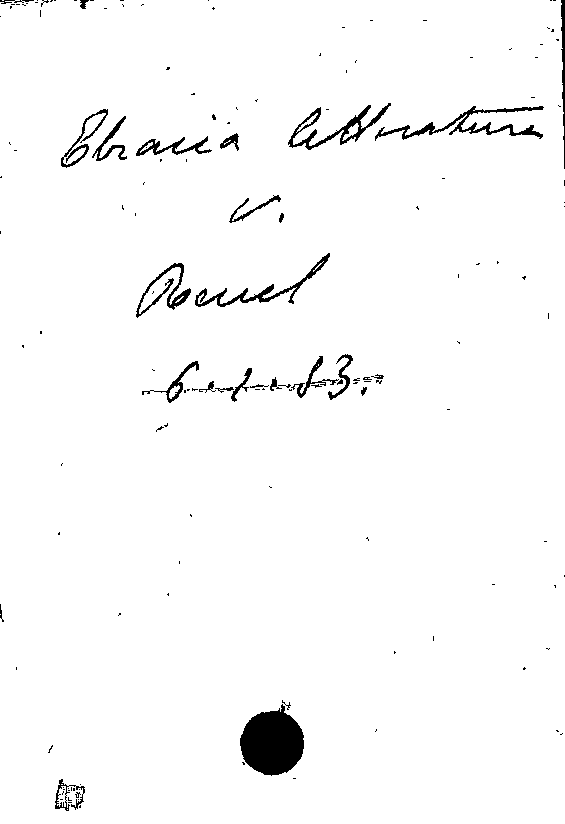 Ebraica letteratura
v.
Reuel
6.1.83.